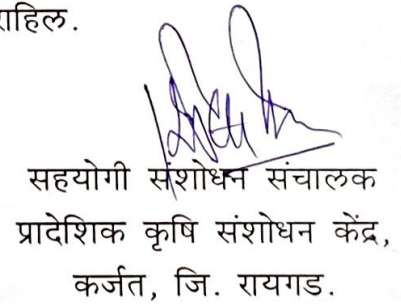 राहिल.
सहयोगी संशोधन संचालक
प्रादेशिक कृषि संशोधन केंद्र,
कर्जत, जि. रायगड.